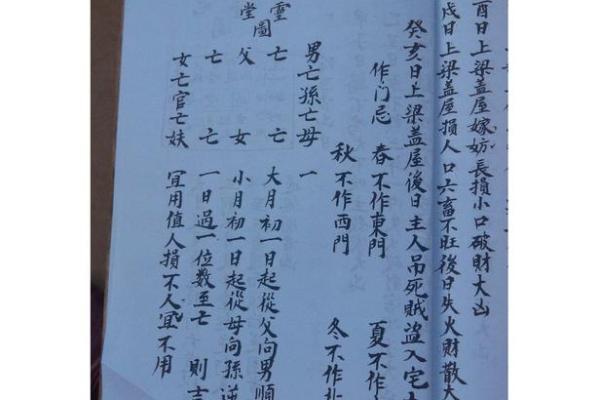 酉日上梁盖屋嫁妨長損小口破財大凶
戍日上梁盖屋損人口六畜不旺後日失火財散大
癸亥日上梁盖屋後日主人吊死賊盗入宅大
作门忌 春不作東門 夏不作
秋不作西門 冬不作北
男亡孫亡母 一
亡 亡 大月初一日起從父向男順
父 女 小月初一日起從母向孫逆
亡 亡 一日過一位数至亡 則吉
女亡官亡妖 宜用值人損不人宜不用
靈
堂圖